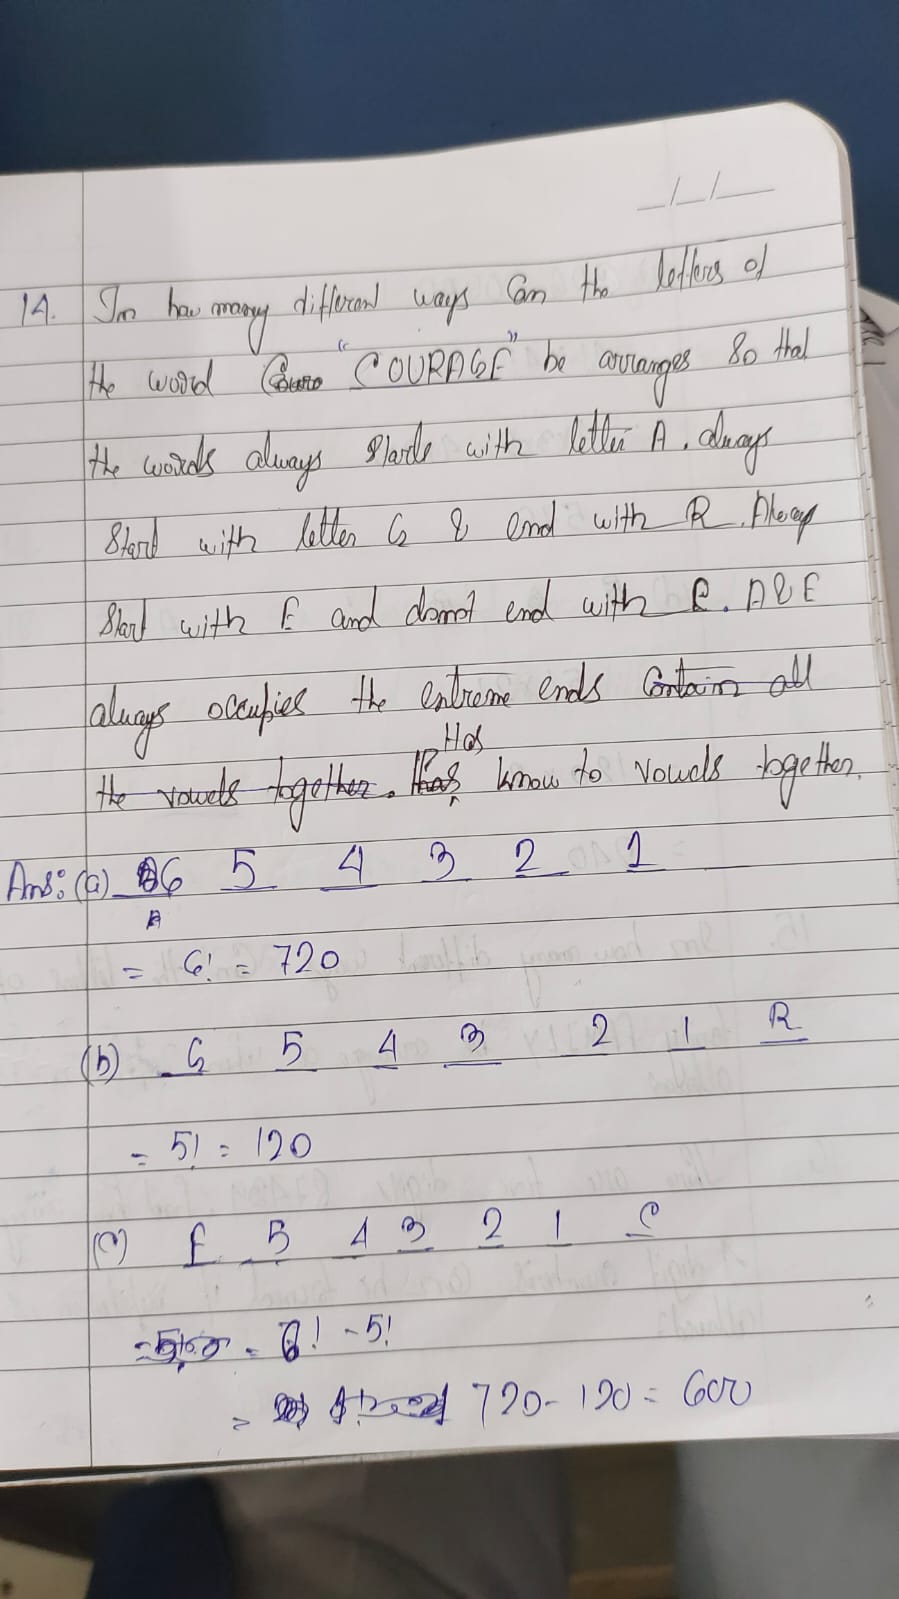 _/_/__
14. In how many different ways Can the letters of
the word "COURAGE" be arranges so that
the words always starts with letter A. always
Start with letter G & end with R. Always
Start with E and donot end with C. A&E
always occupies the extreme ends Contain all
the vowels together. Has know to vowels together.
Ans: (a) 6 5 4 3 2 1
A
= 6! = 720
(b) G 5 4 3 2 1 R
= 5! = 120
(c) E 5 4 3 2 1 C
= 6! - 5!
= 720 - 120 = 600